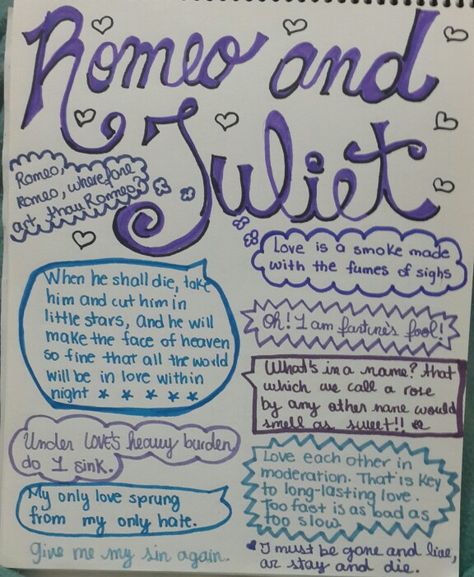 Romeo and
Juliet
Romeo,
Romeo, wherefore
art thou Romeo?
Love is a smoke made
with the fumes of sighs
When he shall die, take
him and cut him in
little stars, and he will
make the face of heaven
so fine that all the world
will be in love within
night
Oh! I am fortune's fool!
What's in a name? that
which we call a rose
by any other name would
smell as sweet!!
Under LOVE'S heavy burden
do I sink.
Love each other in
moderation. That is key
to long-lasting love.
Too fast is as bad as
too slow.
My only love sprung
from my only hate.
give me my sin again.
I must be gone and live,
or stay and die.